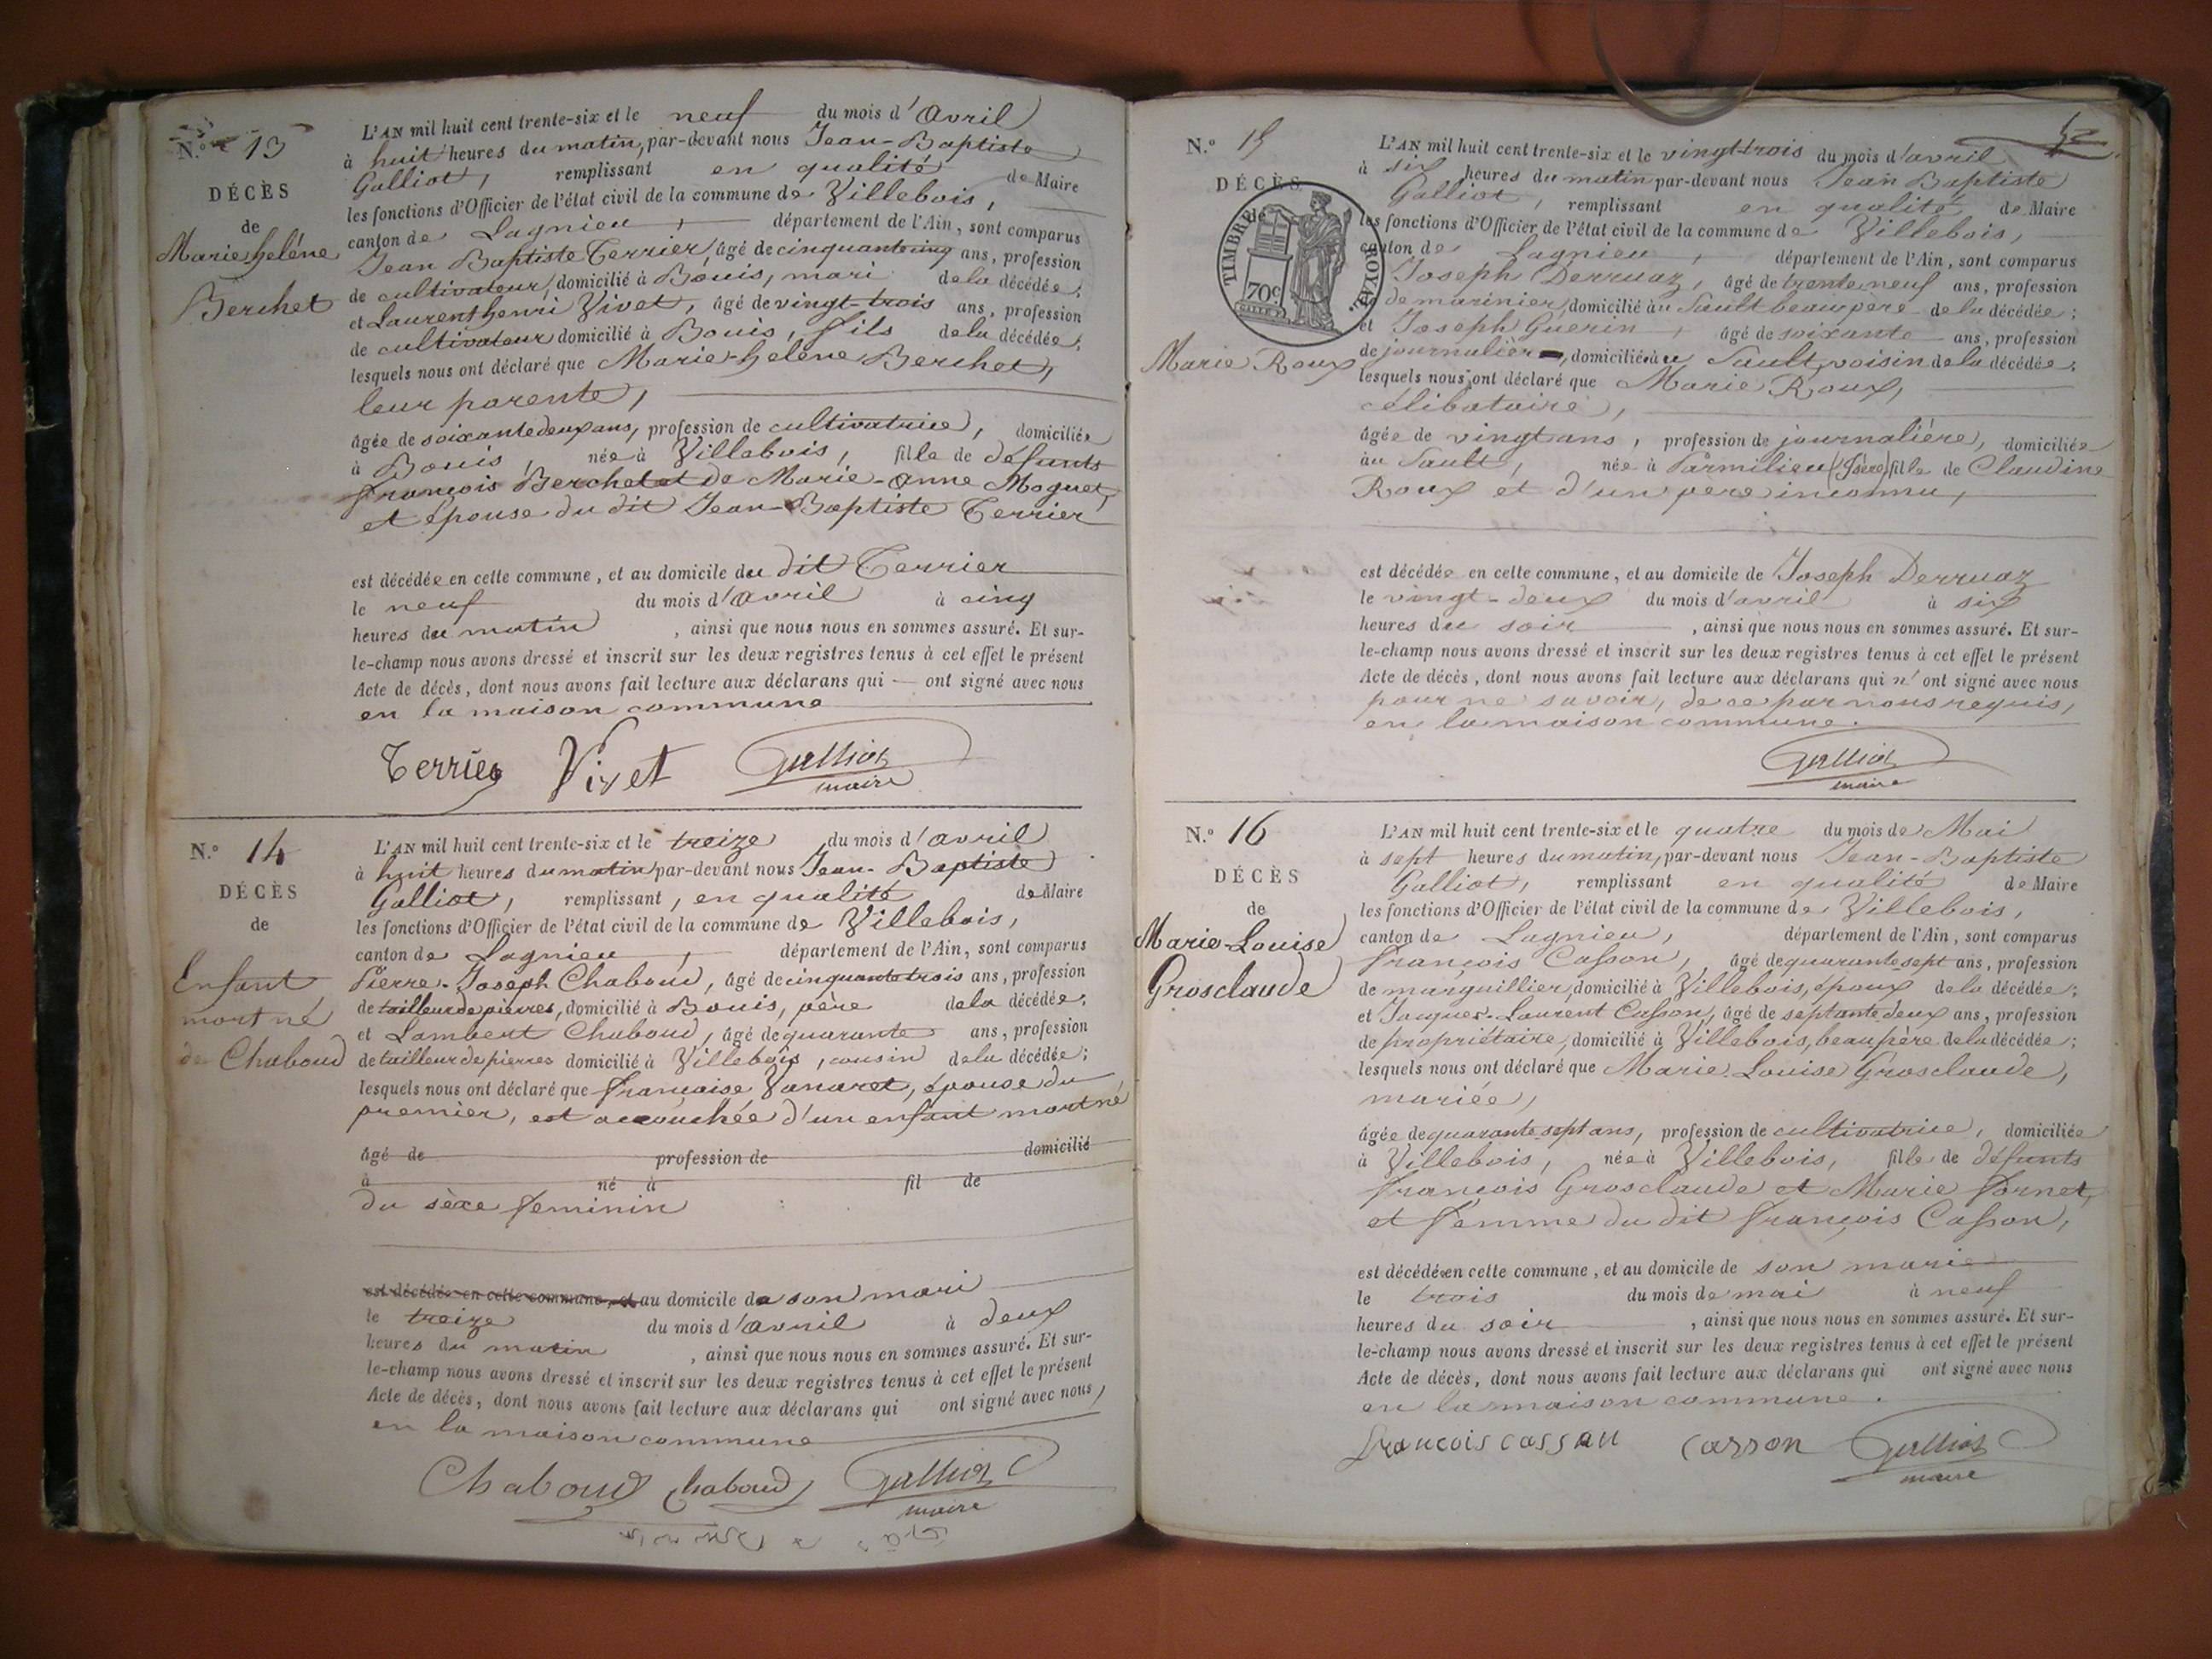 N.° 13
DÉCÈS
de
Marie heléne
Berchet
L'AN mil huit cent trente-six et le neuf du mois d'avril
à huit heures du matin, par-devant nous Jean-Baptiste
Galliot, remplissant en qualité de Maire
les fonctions d'Officier de l'état civil de la commune de Villebois,
canton de Lagnieu, département de l'Ain, sont comparus
Jean Baptiste Terrier, âgé de cinquante cinq ans, profession
de cultivateur, domicilié à Bouis, mari de la décédée;
et Laurent henri Vivet, âgé de vingt-trois ans, profession
de cultivateur domicilié à Bouis, fils de la décédée;
lesquels nous ont déclaré que Marie-heléne Berchet,
leur parente,
âgée de soixante deux ans, profession de cultivatrice, domiciliée
à Bouis, née à Villebois, fille de défunts
françois Berchet et de Marie-Anne Moguet,
et épouse du dit Jean-Baptiste Terrier
est décédée en cette commune, et au domicile du dit Terrier
le neuf du mois d'avril à cinq
heures du matin, ainsi que nous nous en sommes assuré. Et sur-
le-champ nous avons dressé et inscrit sur les deux registres tenus à cet effet le présent
Acte de décès, dont nous avons fait lecture aux déclarans qui — ont signé avec nous
en la maison commune
Terrier Vivet Galliot
maire
N.° 14
DÉCÈS
de
Enfant
mort né
de Chaboud
L'AN mil huit cent trente-six et le treize du mois d'avril
à huit heures du matin par-devant nous Jean-Baptiste
Galliot, remplissant, en qualité de Maire
les fonctions d'Officier de l'état civil de la commune de Villebois,
canton de Lagnieu, département de l'Ain, sont comparus
Pierre-Joseph Chaboud, âgé de cinquante trois ans, profession
de tailleur de pierres, domicilié à Bouis, père de la décédée;
et Lambert Chaboud, âgé de quarante ans, profession
de tailleur de pierres domicilié à Villebois, cousin de la décédée;
lesquels nous ont déclaré que françoise Vanaret, épouse du
premier, est accouchée d'un enfant mort né
âgé de profession de domicilié
à né à fil de
du sèxe feminin
est décédée en cette commune, et au domicile de son mari
le treize du mois d'avril à deux
heures du matin, ainsi que nous nous en sommes assuré. Et sur-
le-champ nous avons dressé et inscrit sur les deux registres tenus à cet effet le présent
Acte de décès, dont nous avons fait lecture aux déclarans qui ont signé avec nous,
en la maison commune
Chaboud Chaboud Galliot
maire
N.° 15
DÉCÈS
TIMBRE ROYAL
70c
Marie Roux
L'AN mil huit cent trente-six et le vingt-trois du mois d'avril
à six heures du matin par-devant nous Jean Baptiste
Galliot, remplissant en qualité de Maire
les fonctions d'Officier de l'état civil de la commune de Villebois,
canton de Lagnieu, département de l'Ain, sont comparus
Joseph Derruaz, âgé de trente neuf ans, profession
de marinier, domicilié au Sault beau pere de la décédée;
et Joseph Guerin, âgé de soixante ans, profession
de journalier, domicilié au Sault, voisin de la décédée;
lesquels nous ont déclaré que Marie Roux,
célibataire,
âgée de vingt ans, profession de journalière, domiciliée
au Sault, née à Parmilieu (Isère) fille de Claudine
Roux et d'un pere inconnu,
est décédée en cette commune, et au domicile de Joseph Derruaz
le vingt-deux du mois d'avril à six
heures du soir, ainsi que nous nous en sommes assuré. Et sur-
le-champ nous avons dressé et inscrit sur les deux registres tenus à cet effet le présent
Acte de décès, dont nous avons fait lecture aux déclarans qui n'ont signé avec nous
pour ne savoir, de ce par nous requis,
en la maison commune.
Galliot
maire
N.° 16
DÉCÈS
de
Marie-Louise
Grosclaude
L'AN mil huit cent trente-six et le quatre du mois de Mai
à sept heures du matin, par-devant nous Jean-Baptiste
Galliot, remplissant en qualité de Maire
les fonctions d'Officier de l'état civil de la commune de Villebois,
canton de Lagnieu, département de l'Ain, sont comparus
françois Casson, âgé de quarante sept ans, profession
de marguillier, domicilié à Villebois, époux de la décédée;
et Jacques-Laurent Casson, âgé de septante deux ans, profession
de propriétaire, domicilié à Villebois, beau père de la décédée;
lesquels nous ont déclaré que Marie Louise Grosclaude,
mariée,
âgée de quarante sept ans, profession de cultivatrice, domiciliée
à Villebois, née à Villebois, fille de défunts
françois Grosclaude et Marie fornet,
et femme du dit françois Casson,
est décédée en cette commune, et au domicile de son mari
le trois du mois de mai à neuf
heures du soir, ainsi que nous nous en sommes assuré. Et sur-
le-champ nous avons dressé et inscrit sur les deux registres tenus à cet effet le présent
Acte de décès, dont nous avons fait lecture aux déclarans qui ont signé avec nous
en la maison commune.
francois cassan casson Galliot
maire